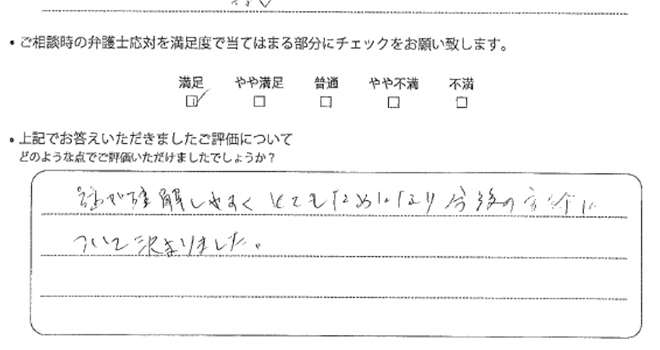 ・ご相談時の弁護士応対を満足度で当てはまる部分にチェックをお願い致します。
満足 やや満足 普通 やや不満 不満
☑ □ □ □ □
・上記でお答えいただきましたご評価について
どのような点でご評価いただけましたでしょうか?
話が理解しやすくとてもためになり今後の方針に
ついて決まりました。